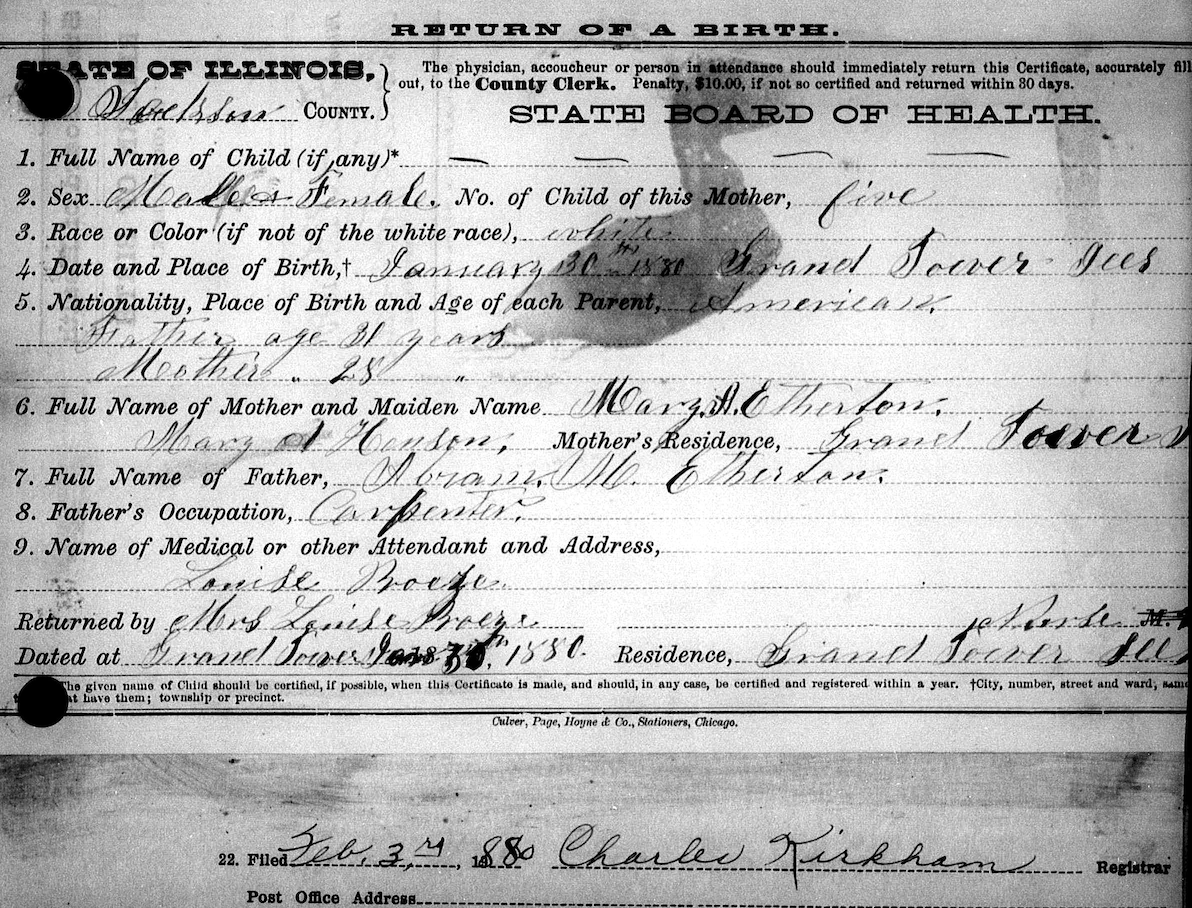 RETURN OF A BIRTH.
STATE OF ILLINOIS,
The physician, accoucheur or person in attendance should immediately return this Certificate, accurately fill
out, to the County Clerk. Penalty, $10.00, if not so certified and returned within 30 days.
Jackson COUNTY.
STATE BOARD OF HEALTH.
1. Full Name of Child (if any)* — — — —
2. Sex Male & Female. No. of Child of this Mother, five
3. Race or Color (if not of the white race), white
4. Date and Place of Birth,† January 30th 1880 Grand Tower Ills
5. Nationality, Place of Birth and Age of each Parent, American.
Father age 31 years
Mother " 28 "
6. Full Name of Mother and Maiden Name Mary. A. Etherton.
Mary A Henson, Mother's Residence, Grand Tower
7. Full Name of Father, Abram. M. Etherton.
8. Father's Occupation, Carpenter.
9. Name of Medical or other Attendant and Address,
Louise
Returned by Mrs Louise Nurse M.
Dated at Grand Tower 1880. Residence, Grand Tower Ills
The given name of Child should be certified, if possible, when this Certificate is made, and should, in any case, be certified and registered within a year. †City, number, street and ward, same
at have them; township or precinct.
Culver, Page, Hoyne & Co., Stationers, Chicago.
22. Filed Feb. 3,rd, 1880 Charles Kirkham Registrar
Post Office Address